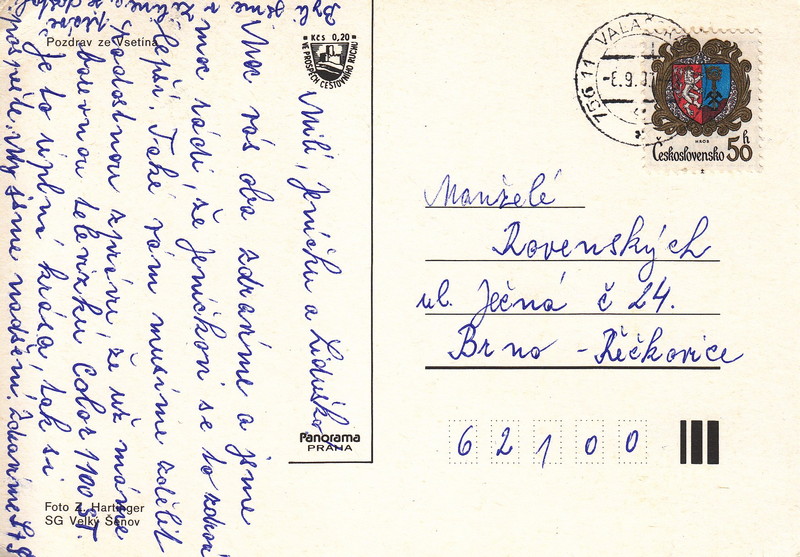 Pozdrav ze Vsetína
Kčs 0,20
VE PROSPĚCH CESTOVNÍHO RUCHU
756 11 VALAŠSK
-6.9.
HROB
Československo 50 h
Milí, Jeníčku a Liduško
Moc vás oba zdravíme a jsme
moc rádi, že Jeníčkovi se to zdraví
lepší. Také vám musíme sdělit
radostnou zprávu, že už máme
barevnou televizku Color 1100 ST.
Je to úplná krása, tak si
pospěšte. My jsme nadšení. Zdravíme
Byli jsme v
Manželé
Rovenských
ul. Ječná č 24.
Brno - Řečkovice
62100
Panorama
PRAHA
Foto Z. Hartinger
SG Velký Šenov